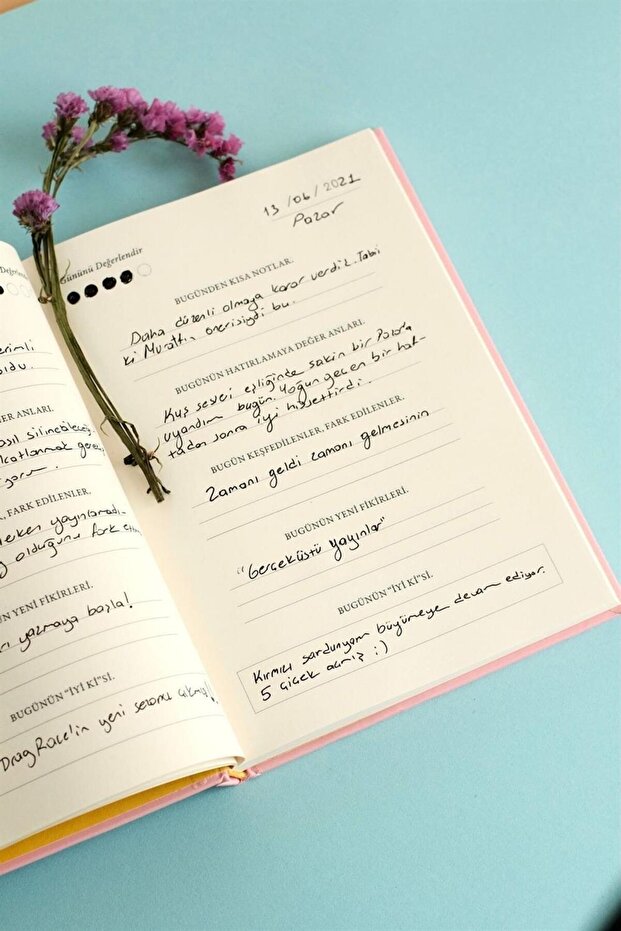 Değerlendir
erimli
oldu.
ER ANLARI.
asıl silineb
gerek
iyorum.
, FARK EDİLENLER.
yayınlamadı
olduğunu fark ettim
N YENİ FİKİRLERİ.
rı yazmaya başla!
BUGÜNÜN "İYİ Kİ"Sİ.
DragRace'in yeni sezonu çıkmış!
13/06/2021
Pazar
Gününü Değerlendir
BUGÜNDEN KISA NOTLAR.
Daha düzenli olmaya karar verdiz. Tabii
ki Murat'ın önerisiydi bu.
BUGÜNÜN HATIRLAMAYA DEĞER ANLARI.
Kuş sesleri eşliğinde sakin bir Pazar'a
uyandım bugün. Yoğun geçen bir haf-
tadan sonra iyi hissettirdi.
BUGÜN KEŞFEDİLENLER, FARK EDİLENLER.
Zamanı geldi zamanı gelmesinin
BUGÜNÜN YENİ FİKİRLERİ.
"Gerçeküstü yayınlar"
BUGÜNÜN "İYİ Kİ"Sİ.
Kırmızı sardunyam büyümeye devam ediyor.
5 çiçek açmış :)